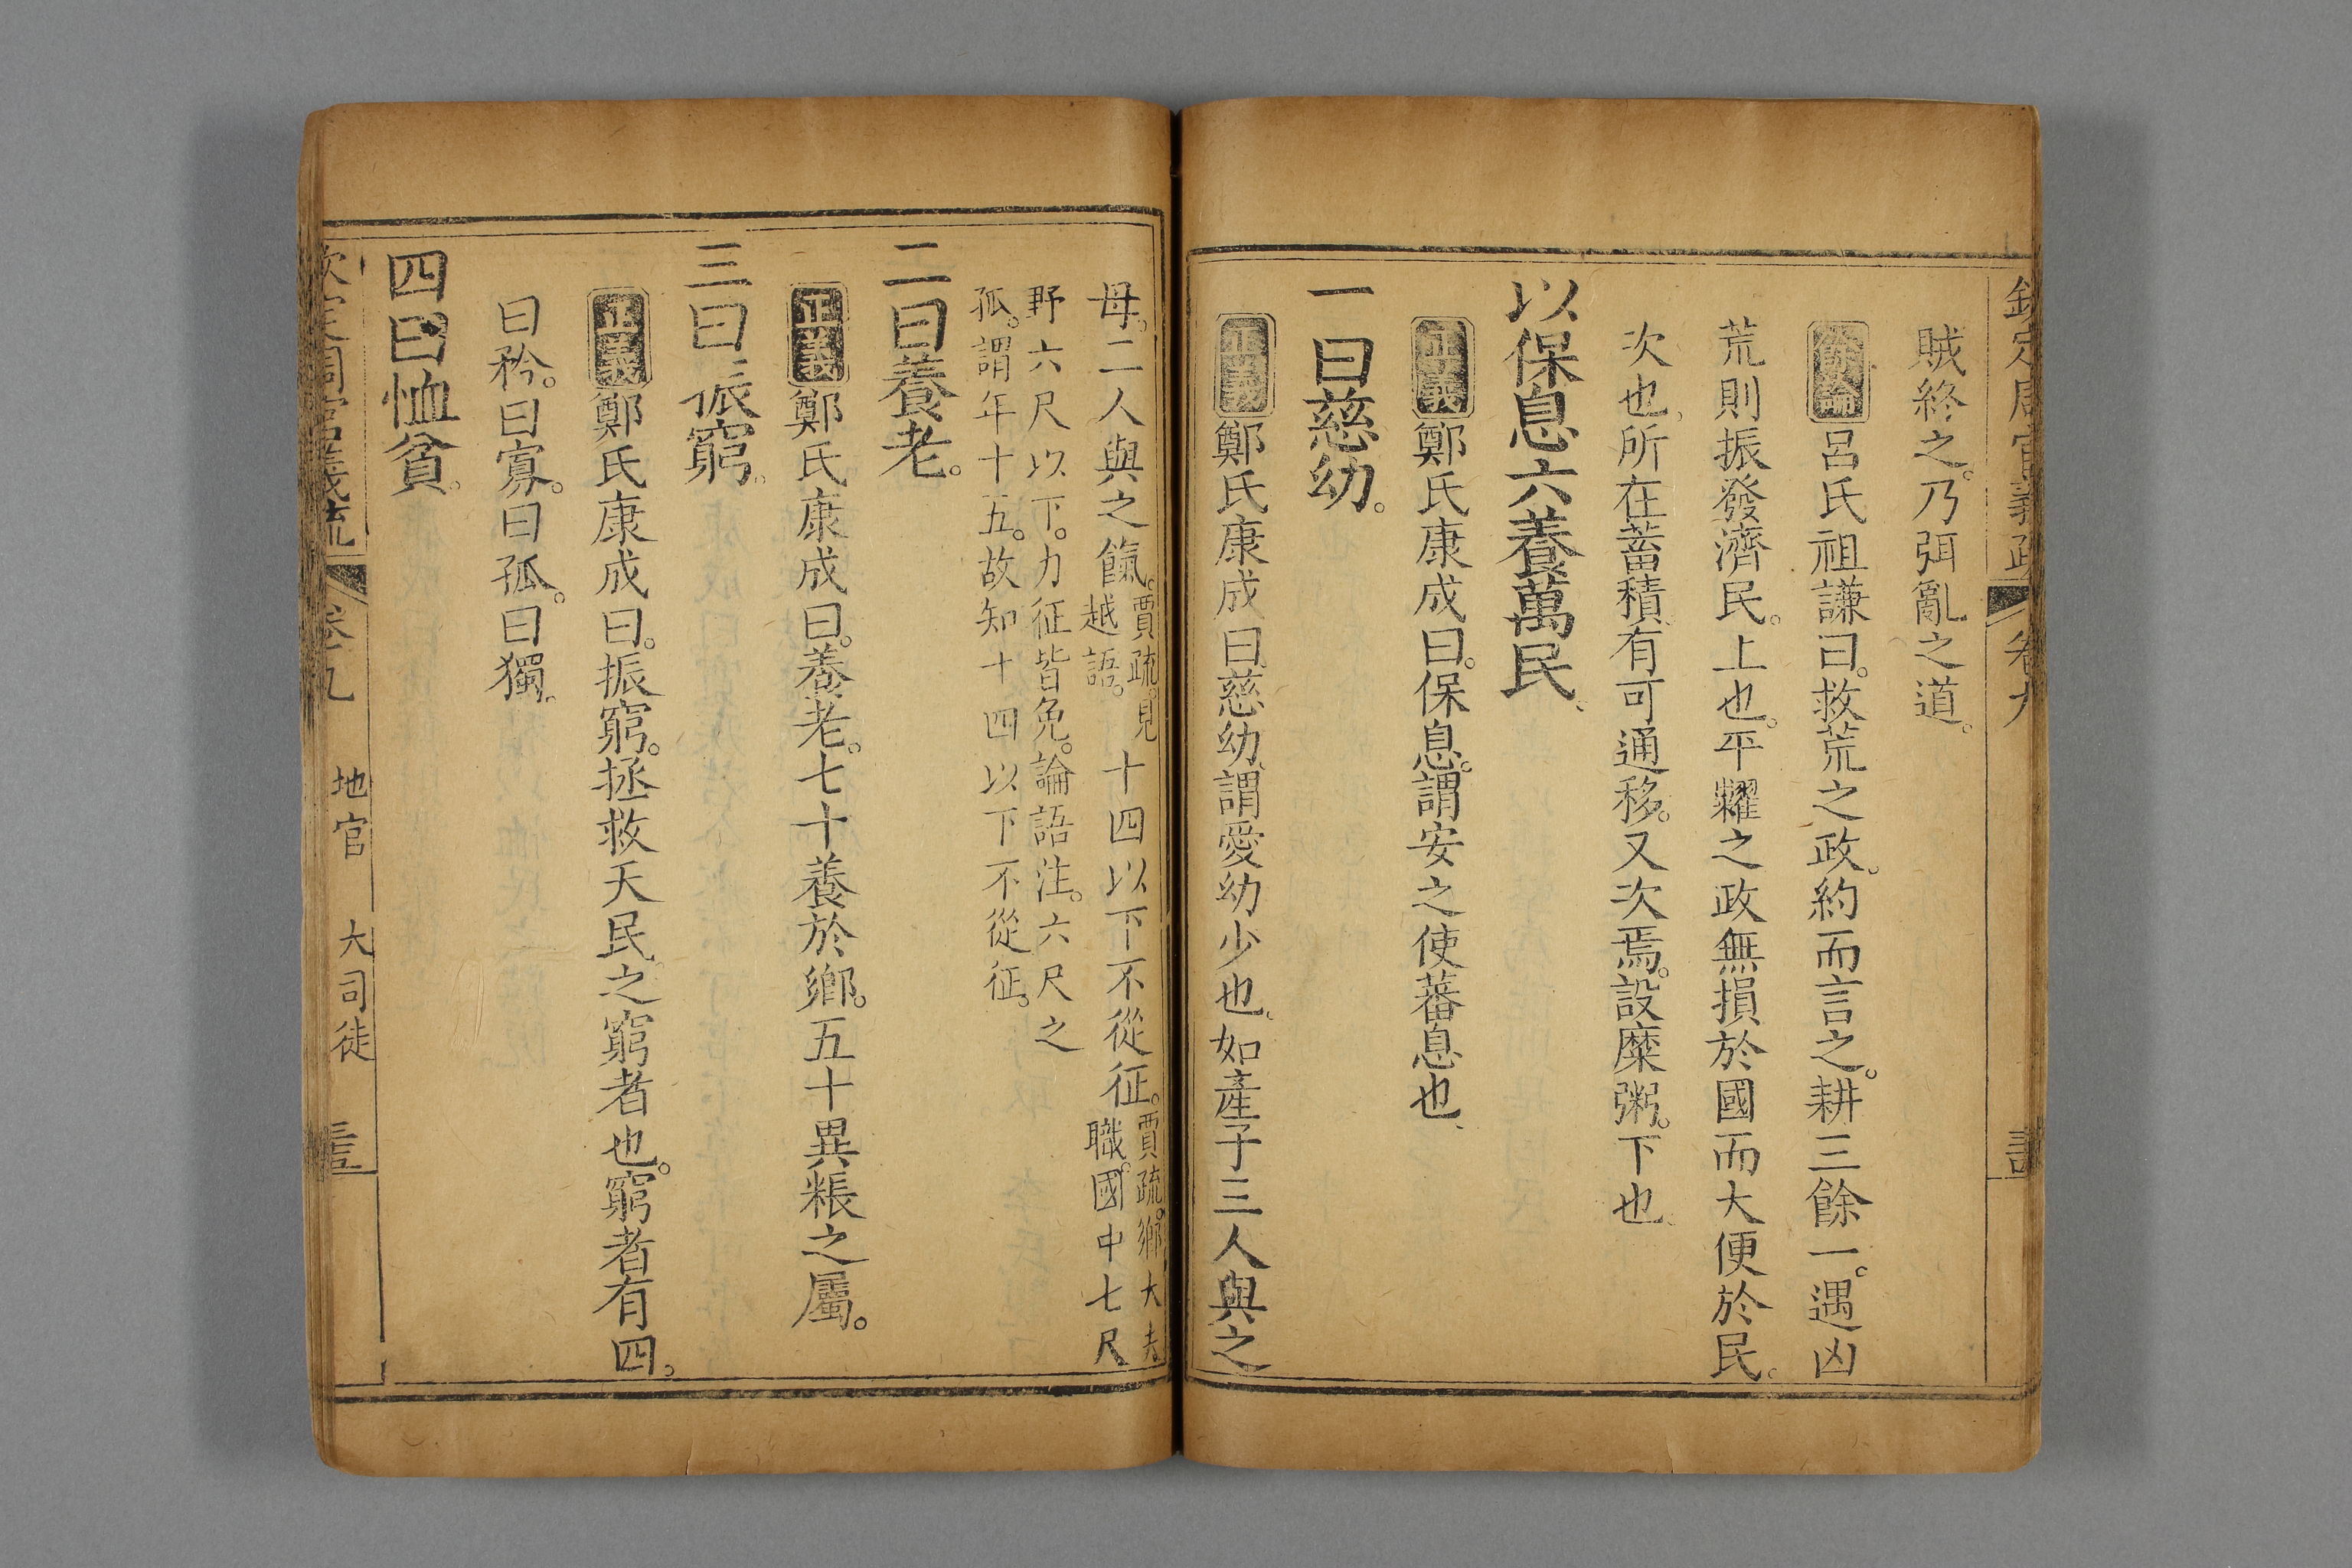 欽定周官義疏 卷九
賊終之。乃弭亂之道。
餘論 呂氏祖謙曰。救荒之政。約而言之。耕三餘一。遇凶
荒則振發濟民。上也。平糶之政無損於國而大便於民。
次也、所在蓄積有可通移。又次焉。設糜粥。下也
以保息六養萬民。
正義 鄭氏康成曰。保息。謂安之使蕃息也、
一曰慈幼。
正義 鄭氏康成曰慈幼謂愛幼少也、如產子三人與之
母。二人與之餼。
賈疏。見
越語。
十四以下不從征。
賈疏。鄉大夫
職。國中七尺
野六尺以下。力征皆免。論語注。六尺之
孤。謂年十五。故知十四以下不從征。
二曰養老。
正義 鄭氏康成曰。養老。七十養於鄉。五十異粻之屬。
三曰振窮。
正義 鄭氏康成曰。振窮。拯救天民之窮者也。窮者有四。
曰矜。曰寡。曰孤。曰獨。
四曰恤貧。
欽定周官義疏 卷九 地官 大司徒